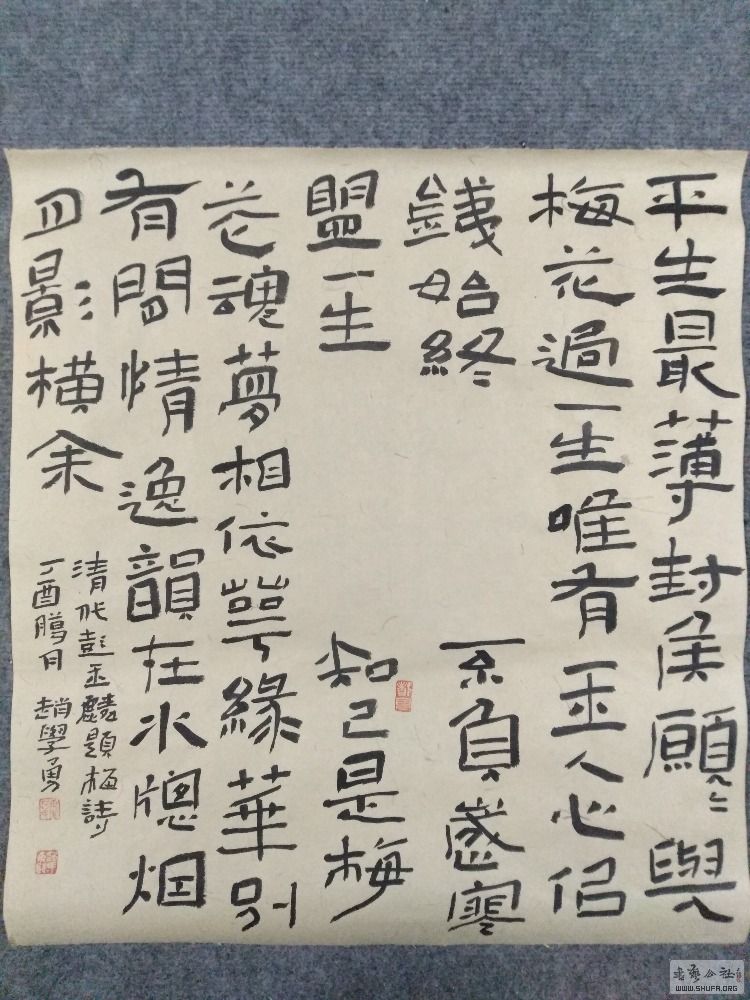 平生最薄封侯願〻與
梅花過一生唯有玉人心佀
鐵始終 不負歲寒
盟一生 知己是梅
花魂夢相依萼綠華别
有閒情逸韻在水牕烟
月影橫余
清代彭玉麟題梅詩
丁酉臘月 趙學勇
書藝公社
WWW.SHUFA.ORG